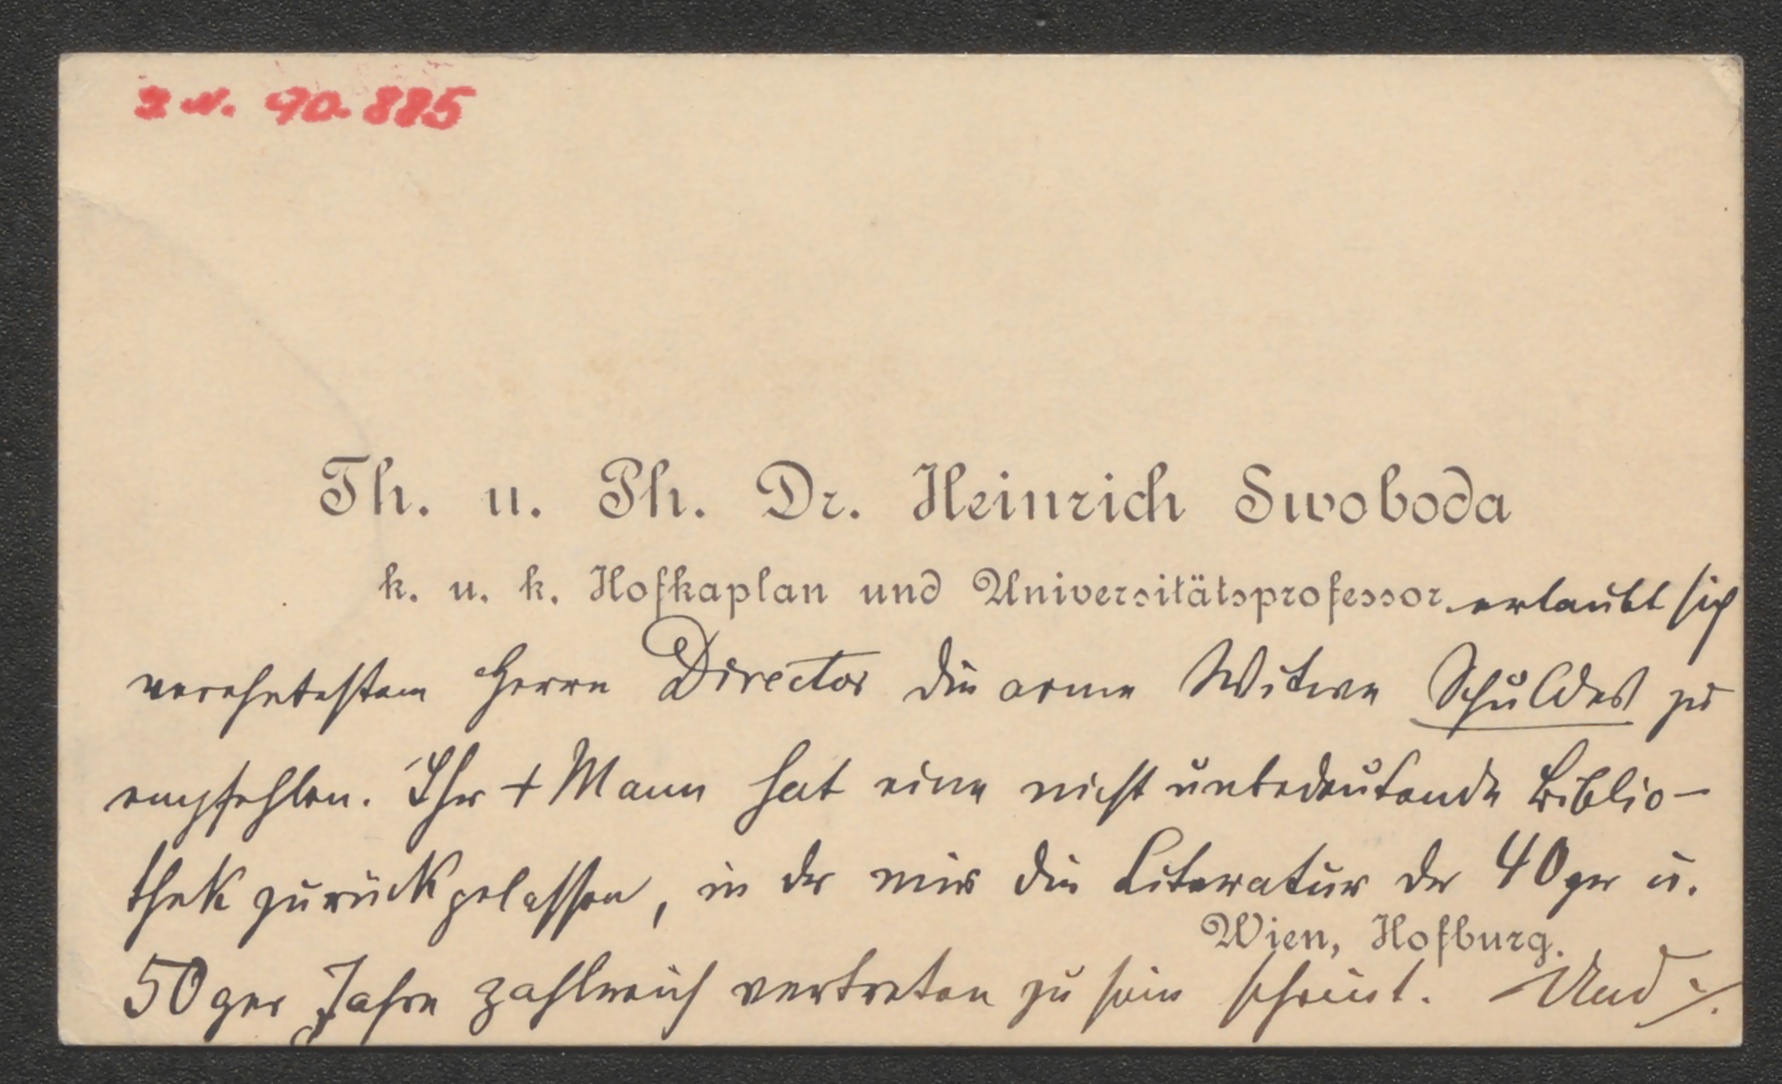 I.N. 90.885
Th. u. Ph. Dr. Heinrich Swoboda
k. u. k. Hofkaplan und Universitätsprofessor erlaubt sich
verehrtestem Herrn Director die arme Witwe Schuldes zu
empfehlen. Ihr + Mann hat eine nicht unbedeutende Biblio-
thek zurückgelassen, in der mir die Literatur der 40ger u.
Wien, Hofburg.
50ger Jahre zahlreich vertreten zu sein scheint. Und ./.